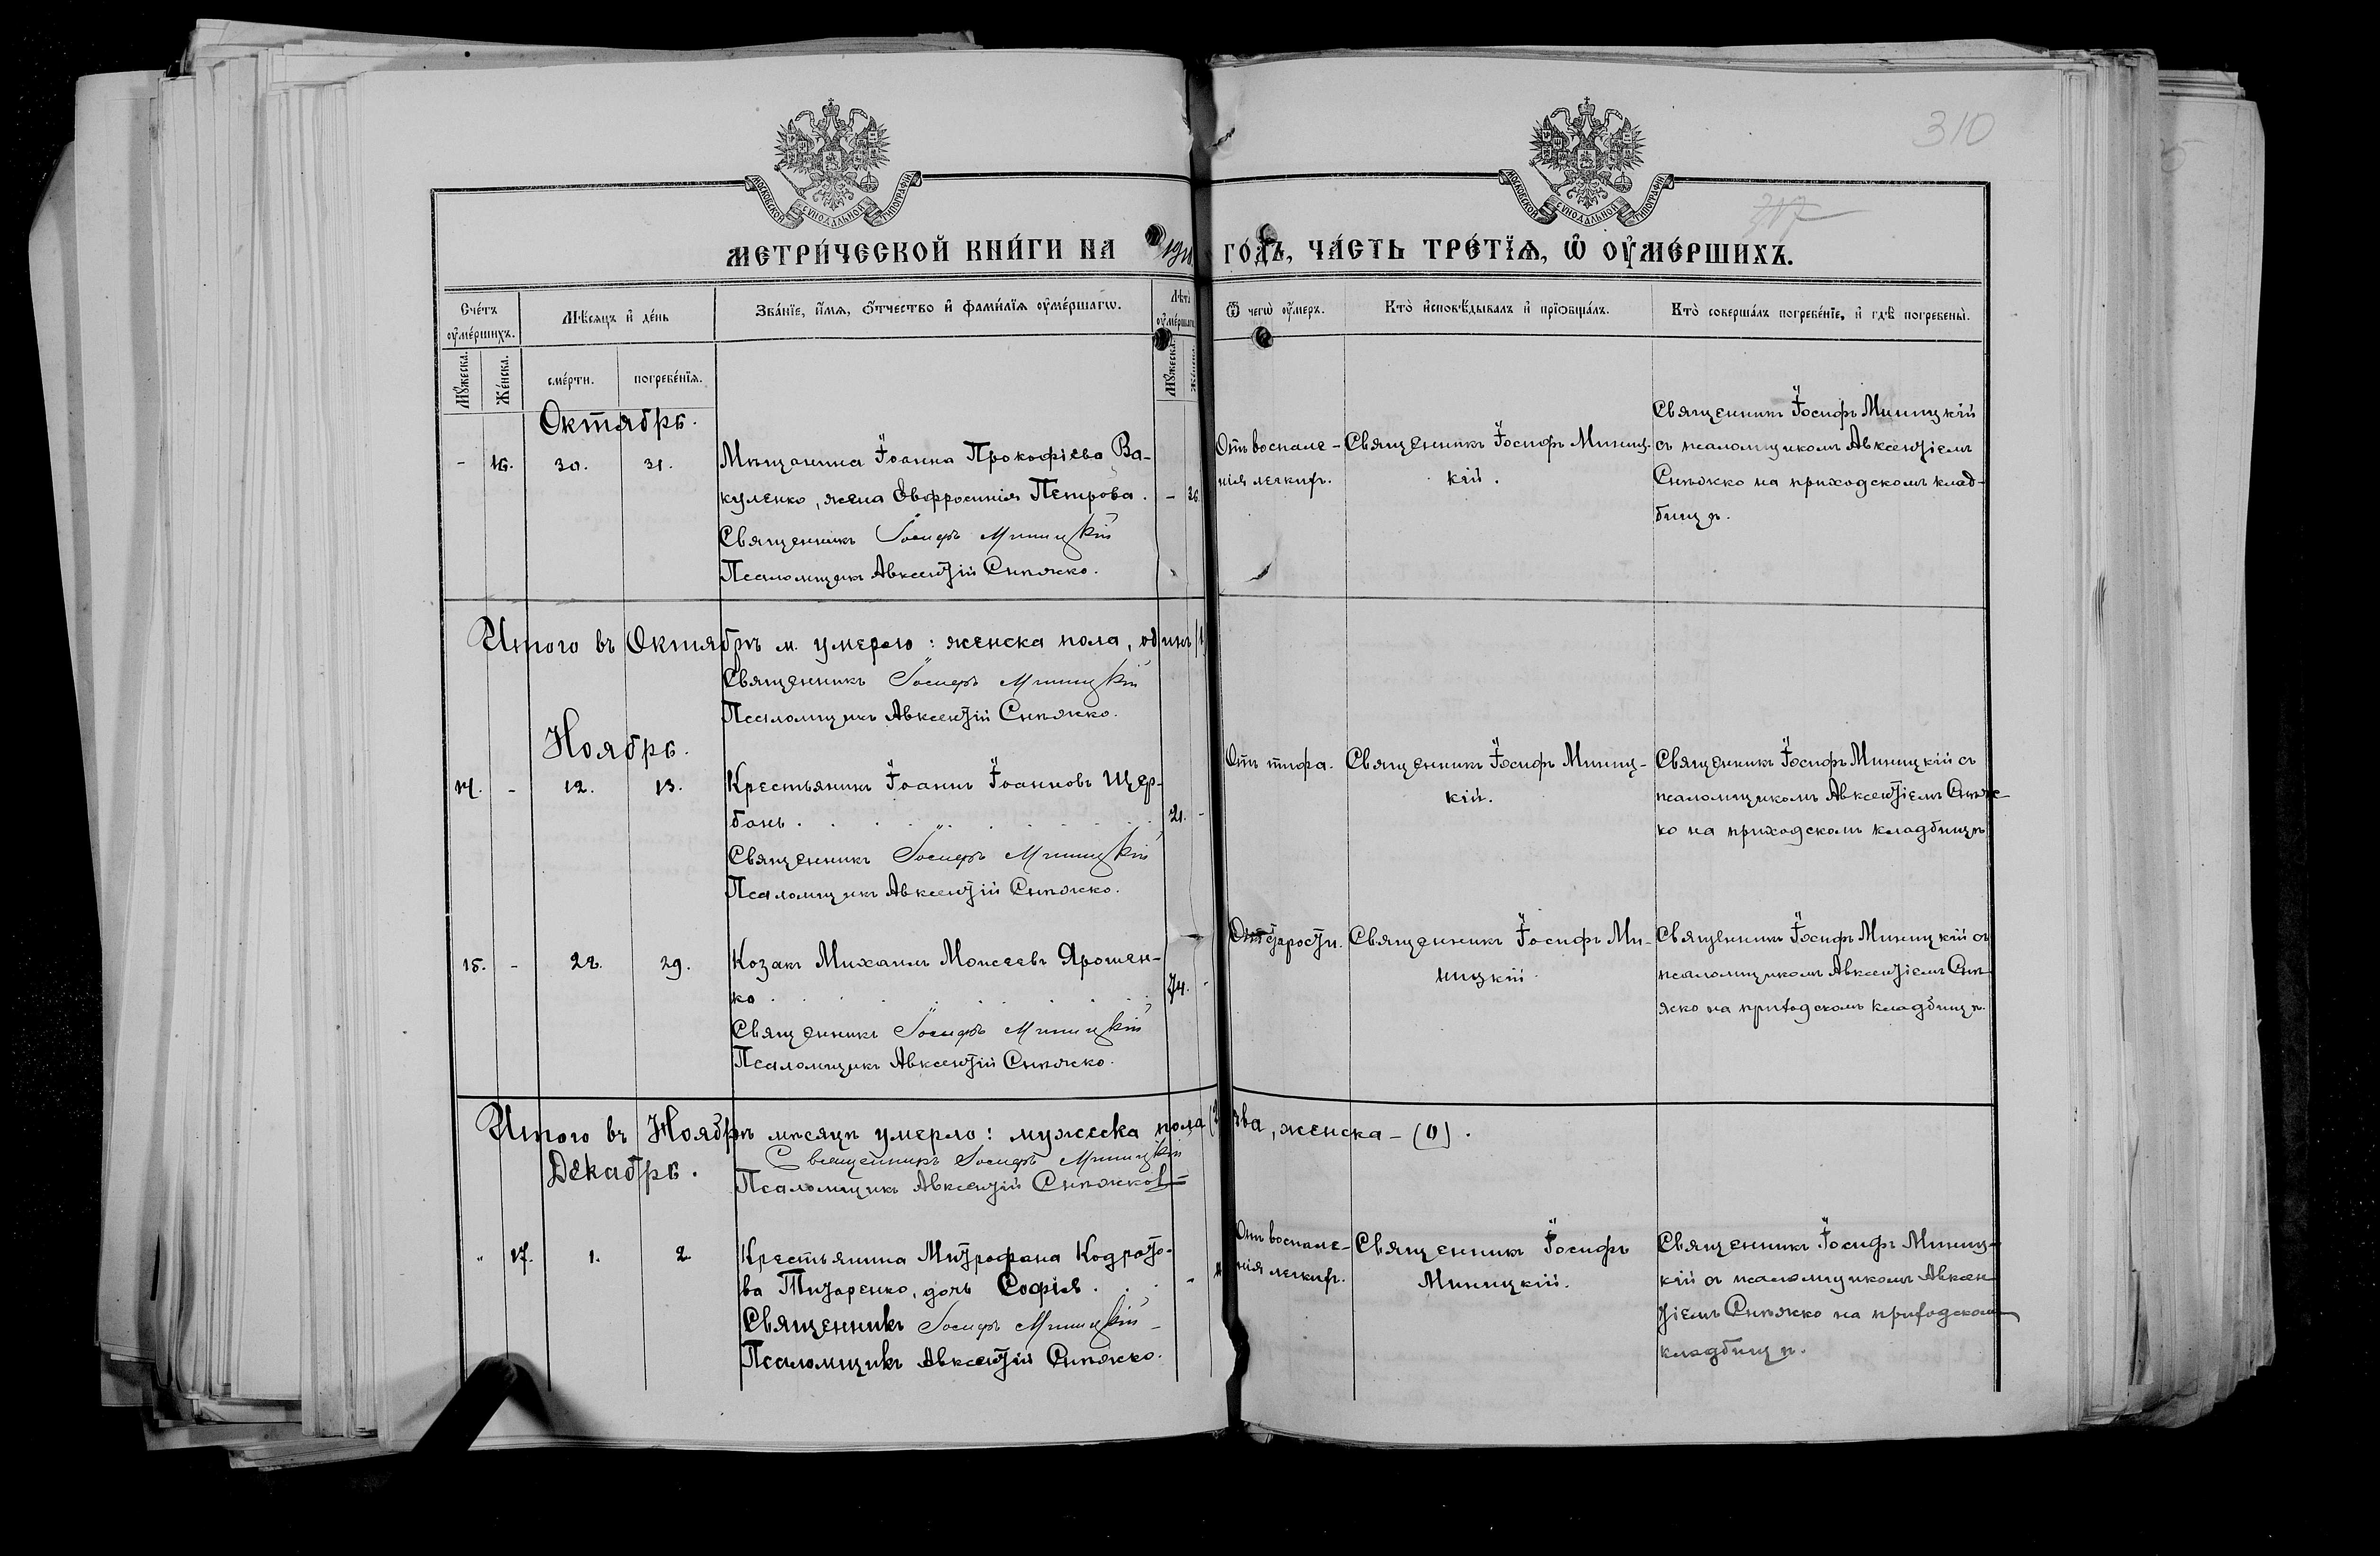 310
317
МОСКОВСКОЙ СѴНОДАЛЬНОЙ ТИПОГРАФІИ
МОСКОВСКОЙ СѴНОДАЛЬНОЙ ТИПОГРАФІИ
МЕТРИ́ЧЕСКОЙ КНИ́ГИ НА ГО́ДЪ, ЧА́СТЬ ТРЕ́ТЇѦ, Ѡ҆ ОУ҆МЕ́РШИХЪ.
Сче́тъ оу҆ме́ршихъ.
Мѣ́сяцъ и҆ де́нь
Зва́нїе, и҆́мя, ѻ҆́тчество и҆ фами́лїя оу҆ме́ршагѡ.
Лѣ́та оу҆ме́ршагѡ
Ѿ чегѡ̀ оу҆́меръ.
Кто̀ и҆сповѣ́дывалъ и҆ прїѡбща́лъ.
Кто̀ соверша́лъ погребе́нїе, и҆ гдѣ̀ погребены̀.
Мꙋ́жеска. Же́нска. сме́рти. погребе́нїя. Мꙋ́жеска. Же́нска.
Октябрь.
- 16. 30. 31.
Мѣщанина Іоанна Прокофіева Ва-
куленко, жена Евфросинія Петрова. -
Священникъ Іосифъ Миницкій
Псаломщикъ Авксентій Снѣжко.
Отъ воспале-
нія легкихъ.
Священникъ Іосифъ Миниц-
кій.
Священникъ Іосифъ Миницкій
съ псаломщикомъ Авксентіемъ
Снѣжко на приходскомъ клад-
бищѣ.
Итого въ Октябрѣ м. умерло: женска пола, одинъ (1)
Священникъ Іосифъ Миницкій
Псаломщикъ Авксентій Снѣжко.
Ноябрь.
14. - 12. 13.
Крестьянинъ Іоаннъ Іоанновъ Щер-
бань. 21. -
Священникъ Іосифъ Миницкій
Псаломщикъ Авксентій Снѣжко.
Отъ тифа.
Священникъ Іосифъ Миниц-
кій.
Священникъ Іосифъ Миницкій съ
псаломщикомъ Авксентіемъ Снѣж-
ко на приходскомъ кладбищѣ
15. - 28. 29.
Козакъ Михаилъ Моисеевъ Ярошен-
ко 74. -
Священникъ Іосифъ Миницкій
Псаломщикъ Авксентій Снѣжко.
Отъ старости.
Священникъ Іосифъ Ми-
ницкій
Священникъ Іосифъ Миницкій съ
псаломщикомъ Авксентіемъ Снѣ-
жко на приходскомъ кладбищѣ.
Итого въ Ноябрѣ мѣсяцѣ умерло: мужеска пола (2) два, женска - (0).
Священникъ Іосифъ Миницкій
Псаломщикъ Авксентій Снѣжко
Декабрь.
" 17. 1. 2
Крестьянина Митрофана Кодрато-
ва Титаренко, дочь Софія. -
Священникъ Іосифъ Миницкій
Псаломщикъ Авксентій Снѣжко.
Отъ воспале-
нія легкихъ.
Священникъ Іосифъ
Миницкій.
Священникъ Іосифъ Миниц-
кій съ псаломщикомъ Авксен-
тіемъ Снѣжко на приходскомъ
кладбищѣ.